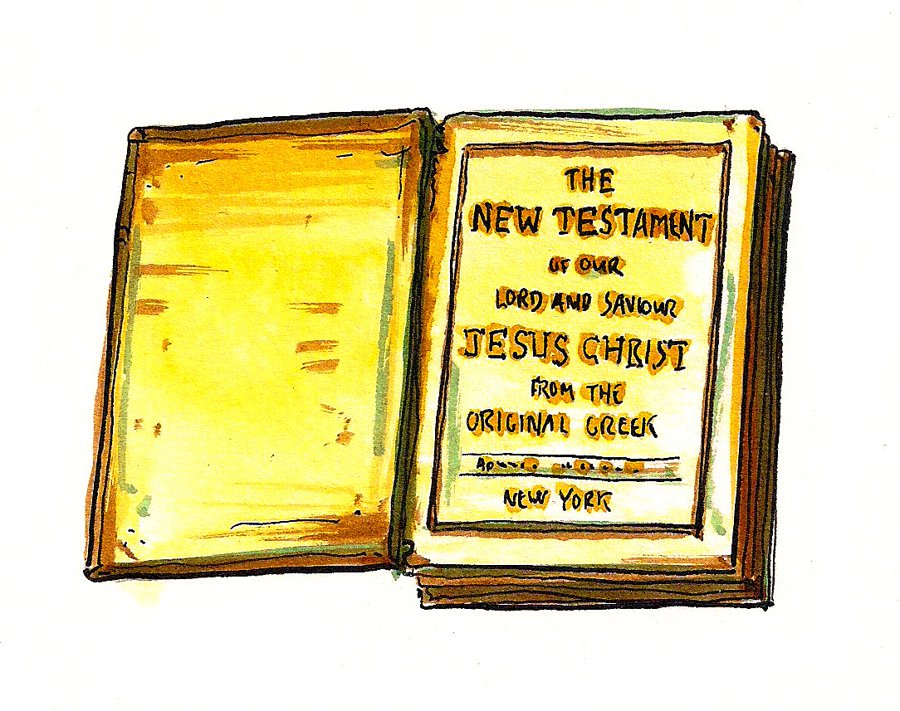 THE
NEW TESTAMENT
OF OUR
LORD AND SAVIOUR
JESUS CHRIST
FROM THE
ORIGINAL GREEK
NEW YORK